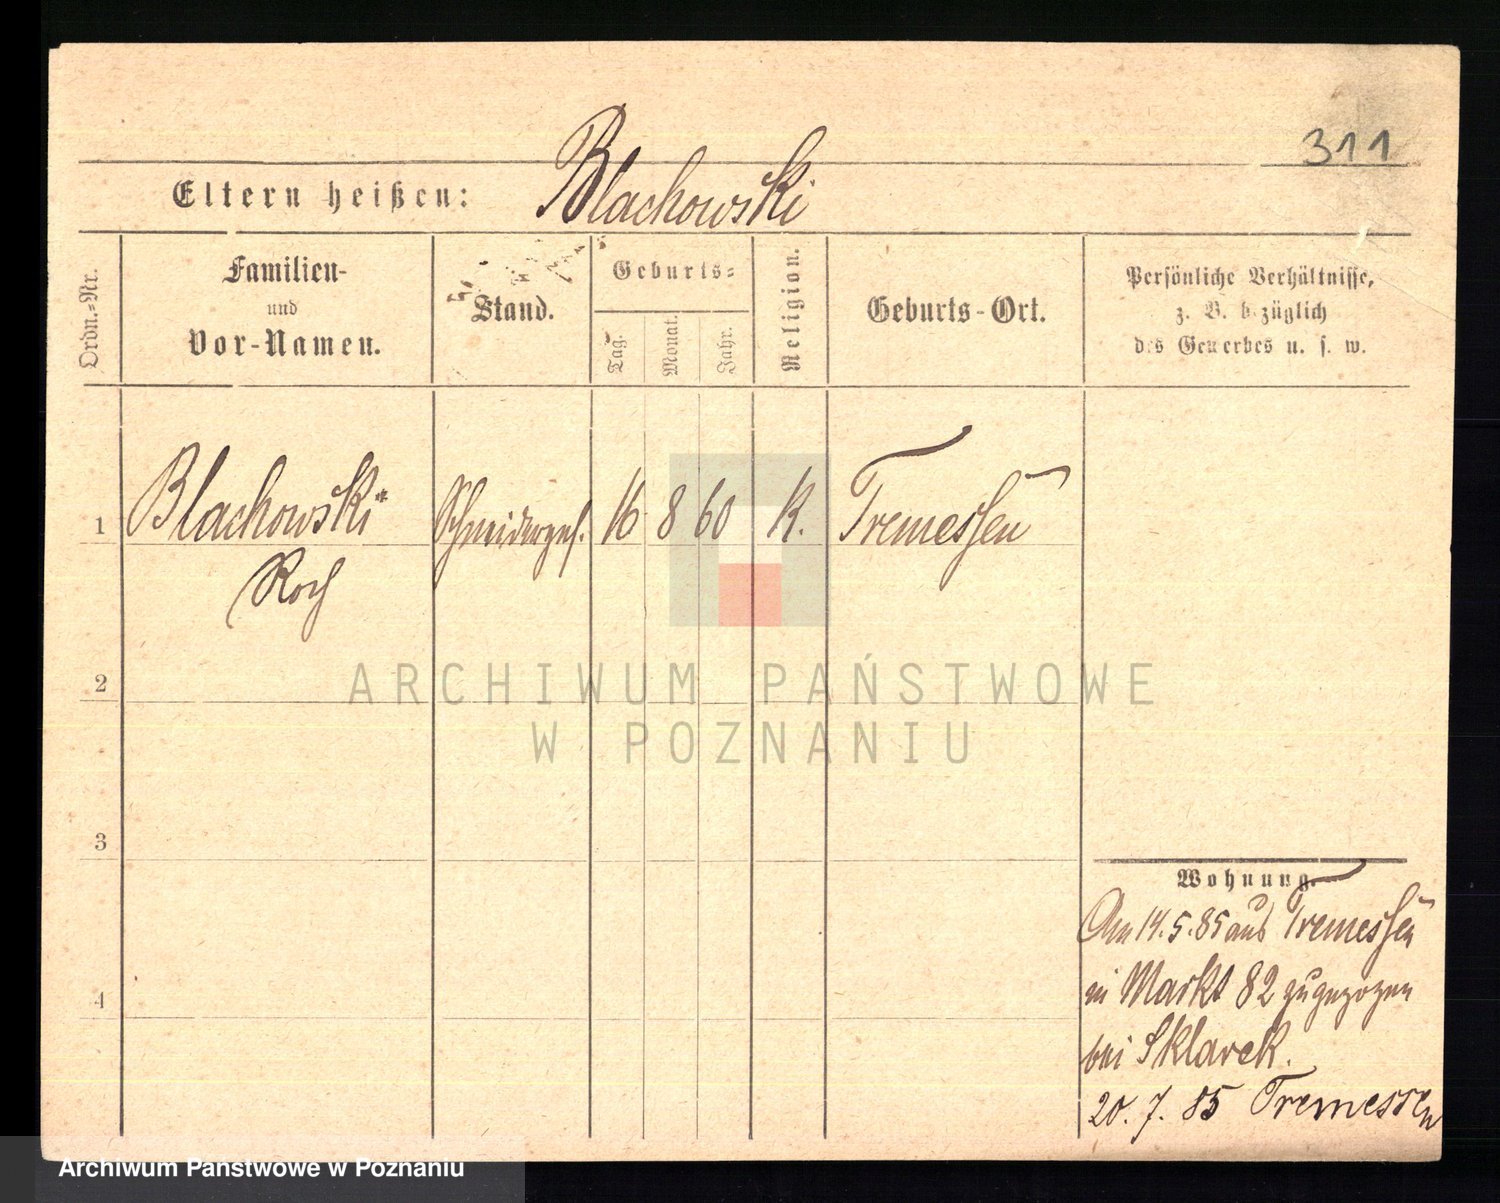 311
Eltern heißen: Blachowski
Ordn.-Nr.
Familien-
und
Vor-Namen.
Stand.
Geburts-
Tag.
Monat.
Jahr.
Religion.
Geburts-Ort.
Persönliche Verhältnisse,
z. B. bezüglich
des Gewerbes u. s. w.
1 Blachowski Schneiderges. 16 8 60 K. Tremessen
Roch
2
3
4
Wohnung.
Am 14.5.85 aus Tremessen
in Markt 82 zugezogen
bei Sklarek.
20. 7. 85 Tremessen
ARCHIWUM PAŃSTWOWE
W POZNANIU
Archiwum Państwowe w Poznaniu